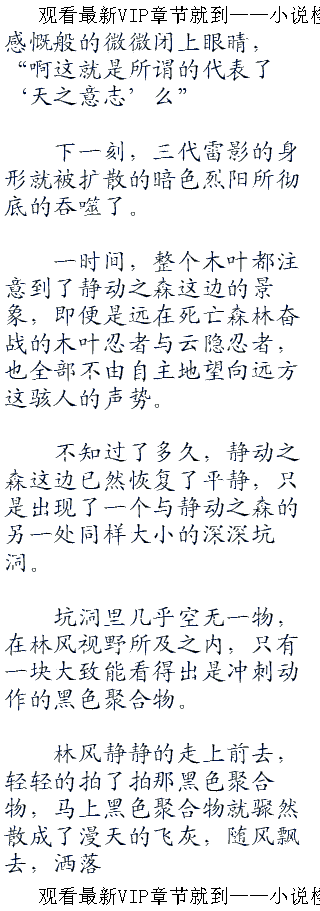 观看最新VIP章节就到——小说
感慨般的微微闭上眼睛，
“啊这就是所谓的代表了
‘天之意志’么”
下一刻，三代雷影的身
形就被扩散的暗色烈阳所彻
底的吞噬了。
一时间，整个木叶都注
意到了静动之森这边的景
象，即便是远在死亡森林奋
战的木叶忍者与云隐忍者，
也全部不由自主地望向远方
这骇人的声势。
不知过了多久，静动之
森这边已然恢复了平静，只
是出现了一个与静动之森的
另一处同样大小的深深坑
洞。
坑洞里几乎空无一物，
在林风视野所及之内，只有
一块大致能看得出是冲刺动
作的黑色聚合物。
林风静静的走上前去，
轻轻的拍了拍那黑色聚合
物，马上黑色聚合物就骤然
散成了漫天的飞灰，随风飘
去，洒落
观看最新VIP章节就到——小说